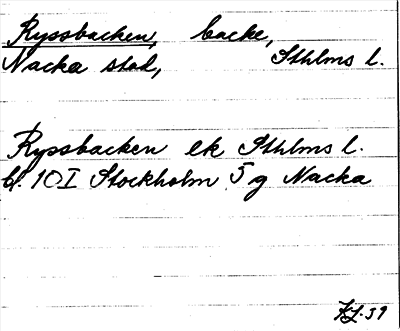 Ryssbacken, backe,
Nacka stad, Sthlms l.
Ryssbacken ek Sthlms l.
bl. 10I Stockholm 5 g Nacka